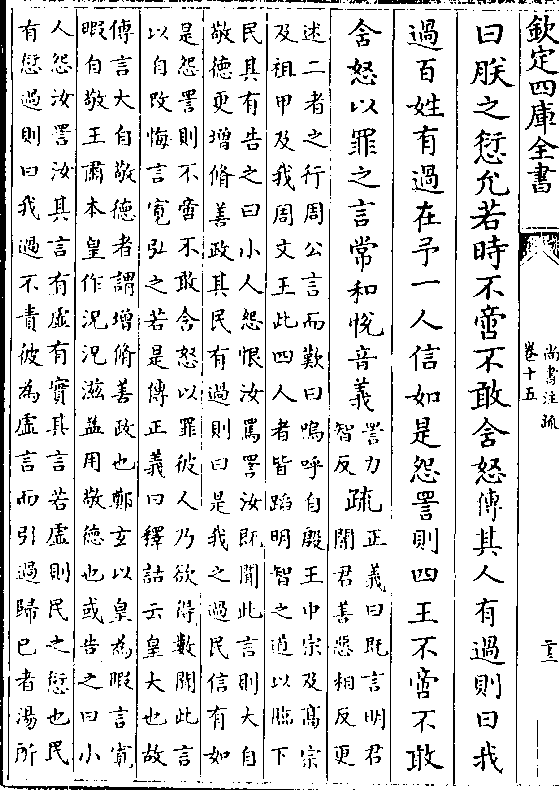 欽定四庫全書
尚書注疏
卷十五
主
曰朕之愆允若時不啻不敢含怒傳其人有過則曰我
過百姓有過在予一人信如是怨詈則四王不啻不敢
含怒以罪之言常和悅音義詈力智反疏正義曰既言明君闇君善惡相反更
述二者之行周公言而歎曰嗚呼自殷王中宗及髙宗
及祖甲及我周文王此四人者皆蹈明智之道以臨下
民其有告之曰小人怨恨汝罵詈汝既聞此言則大自
敬德更增脩善政其民有過則曰是我之過民信有如
是怨詈則不啻不敢含怒以罪彼人乃欲得數聞此言
以自改悔言寛弘之若是傳正義曰釋詁云皇大也故
傳言大自敬德者謂增脩善政也鄭玄以皇為暇言寛
暇自敬王肅本皇作況況滋益用敬德也或告之曰小
人怨汝詈汝其言有虛有實其言若虛則民之愆也民
有愆過則曰我過不責彼為虛言而引過歸已者湯所